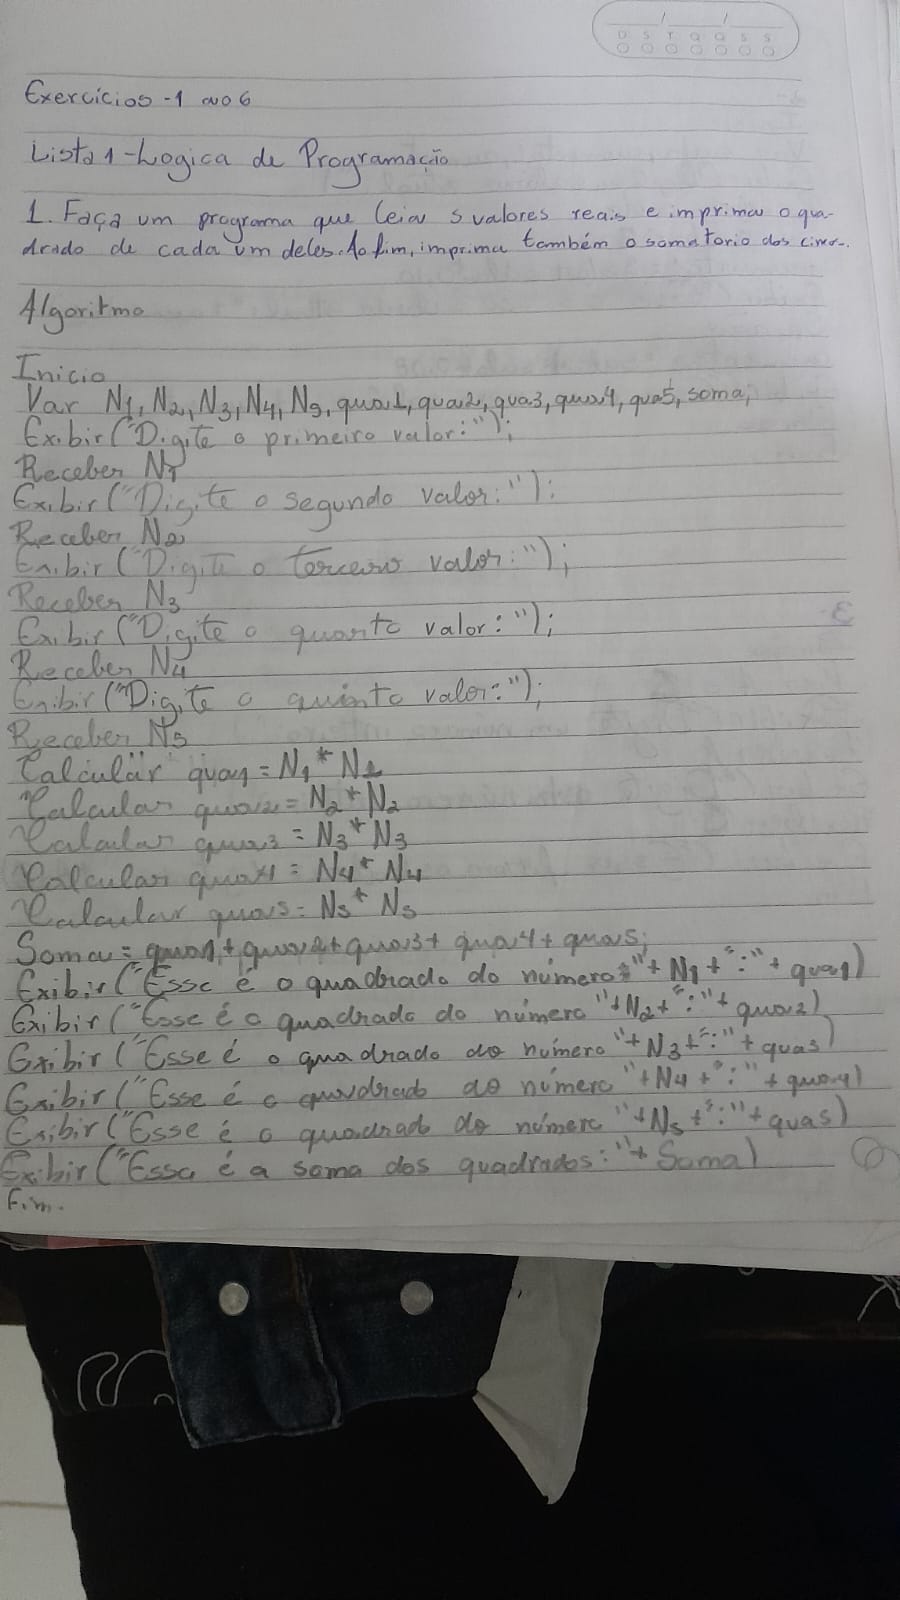 D S T Q Q S S
Exercícios - 1 ao 6
Lista 1 - Logica de Programação
1. Faça um programa que leia 5 valores reais e imprima o qua-
drado de cada um deles. Ao fim, imprima também o somatorio dos cinco.
Algoritmo
Inicio
Var N1, N2, N3, N4, N5, qua1, qua2, qua3, qua4, qua5, soma;
Exibir("Digite o primeiro valor:");
Receber N1
Exibir("Digite o segundo valor:");
Receber N2
Exibir("Digite o terceiro valor:");
Receber N3
Exibir("Digite o quarto valor:");
Receber N4
Exibir("Digite o quinto valor:");
Receber N5
Calcular qua1 = N1 * N1
Calcular qua2 = N2 * N2
Calcular qua3 = N3 * N3
Calcular qua4 = N4 * N4
Calcular qua5 = N5 * N5
Soma = qua1 + qua2 + qua3 + qua4 + qua5;
Exibir("Esse é o quadrado do número:"+ N1 + ":" + qua1)
Exibir("Esse é o quadrado do número "+ N2 + ":" + qua2)
Exibir("Esse é o quadrado do número "+ N3 + ":" + qua3)
Exibir("Esse é o quadrado do número "+ N4 + ":" + qua4)
Exibir("Esse é o quadrado do número "+ N5 + ":" + qua5)
Exibir("Essa é a soma dos quadrados:"+ Soma)
Fim.